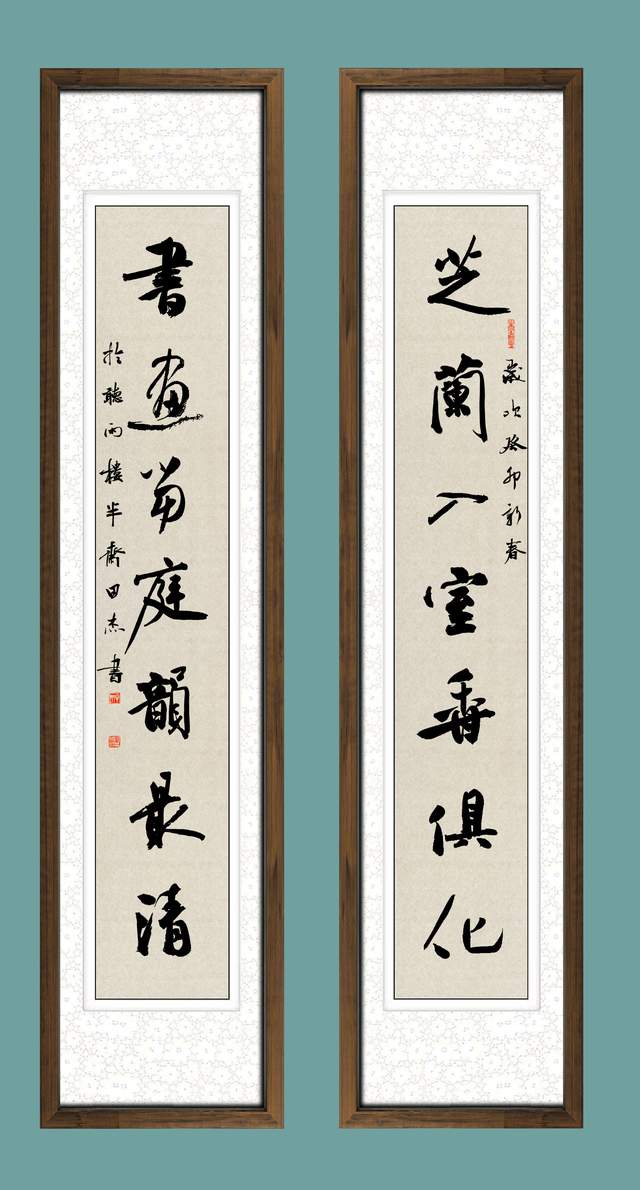 芝蘭入室香俱化
歲次癸卯新春
書畫當庭韻最清
於聽雨樓半齋田杰書